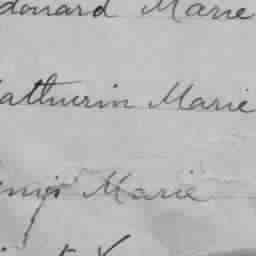 douard Marie
athurin Marie
enis Marie